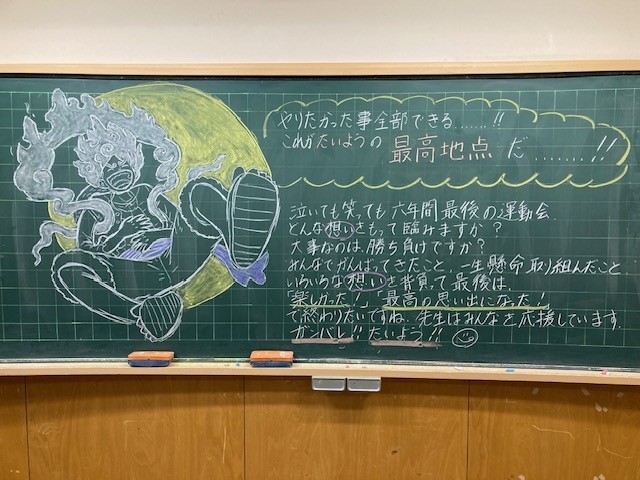 やりたかった事全部できる……!!
これがたいようの 最高地点 だ……!!
泣いても笑っても六年間最後の運動会
どんな想いをもって臨みますか？
大事なのは、勝ち負けですか？
みんなでがんばってきたこと、一生懸命取り組んだこと
いろいろな想いを背負って最後は、
"楽しかった！" "最高の思い出になった！"
で終わりたいですね。先生はみんなを応援しています。
ガンバレ!! たいよう!!